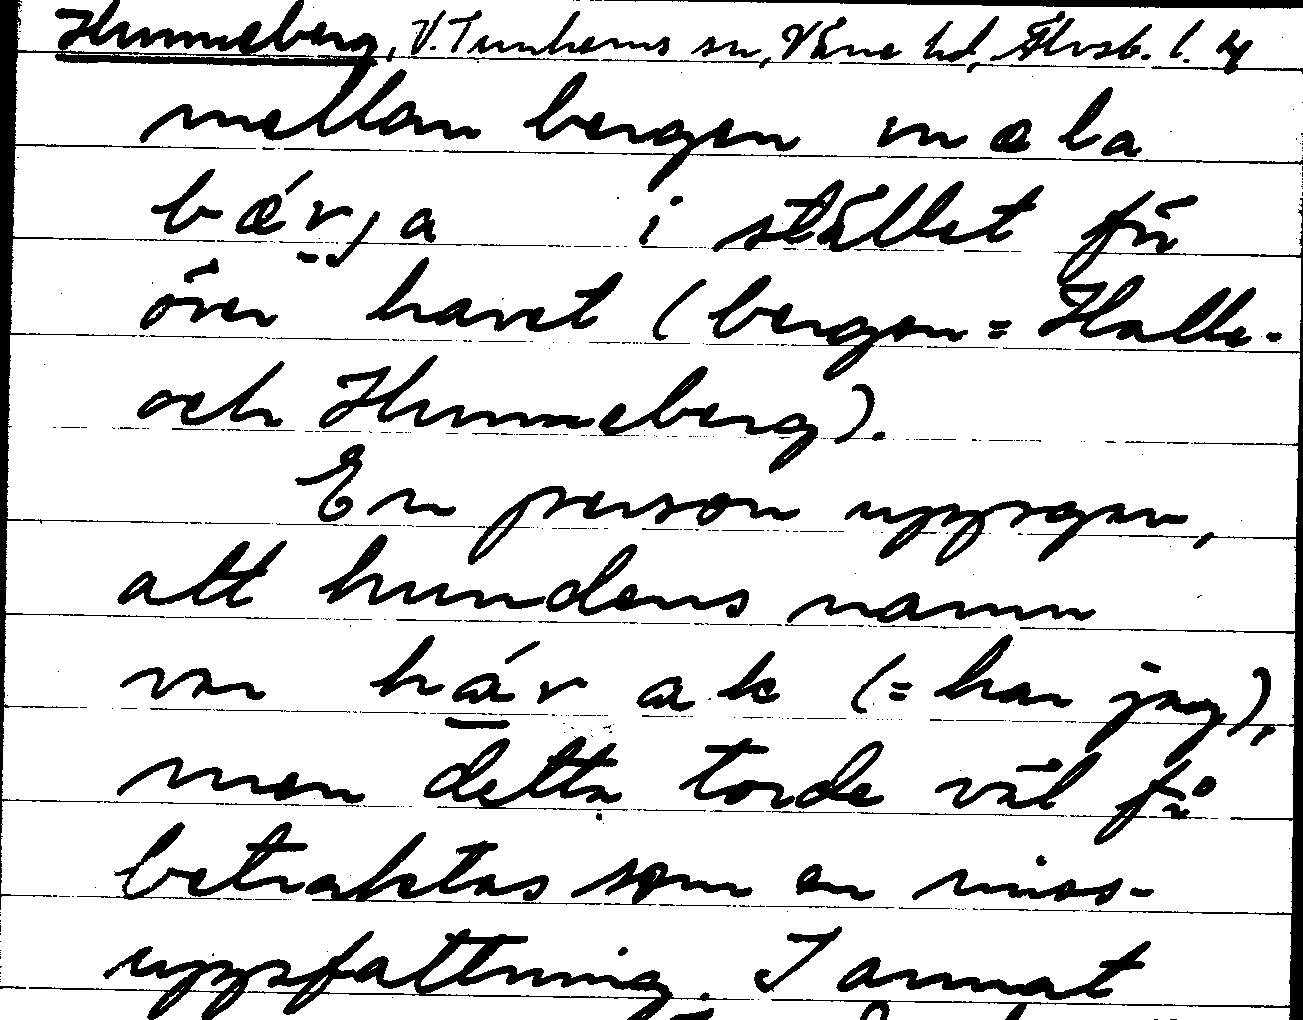 Hunneberg, V. Tunhems sn, Väne hd, Älvsb. l. 4
mellan bergen mæla
bǽrja i stället för
över havet (bergen = Halle-
och Hunneberg).
En person uppgav,
att hundens namn
var háv ak (= har jag),
men detta torde väl få
betraktas som en miss-
uppfattning. I annat